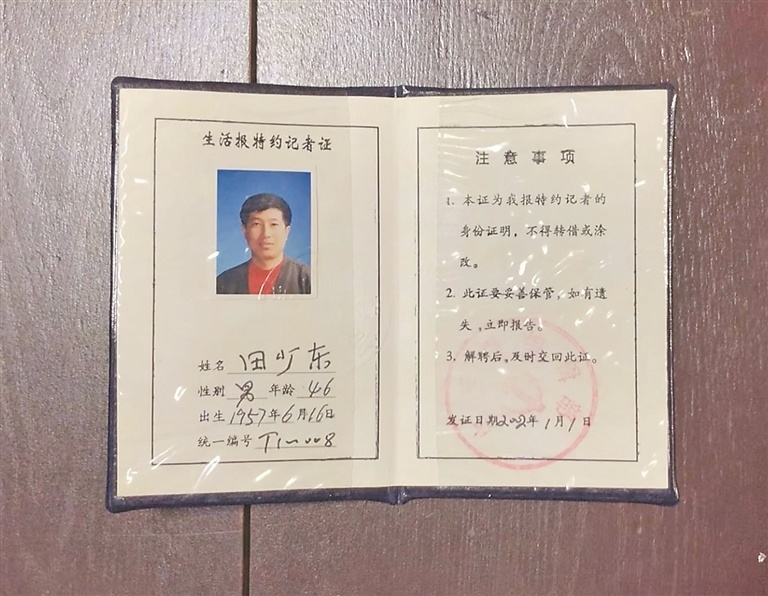 生活报特约记者证
姓名 田 东
性别 男 年龄 46
出生 1957年6月16日
统一编号
注意事项
1. 本证为我报特约记者的
身份证明，不得转借或涂
改。
2. 此证要妥善保管，如有遗
失，立即报告。
3. 解聘后，及时交回此证。
发证日期2002年1月1日